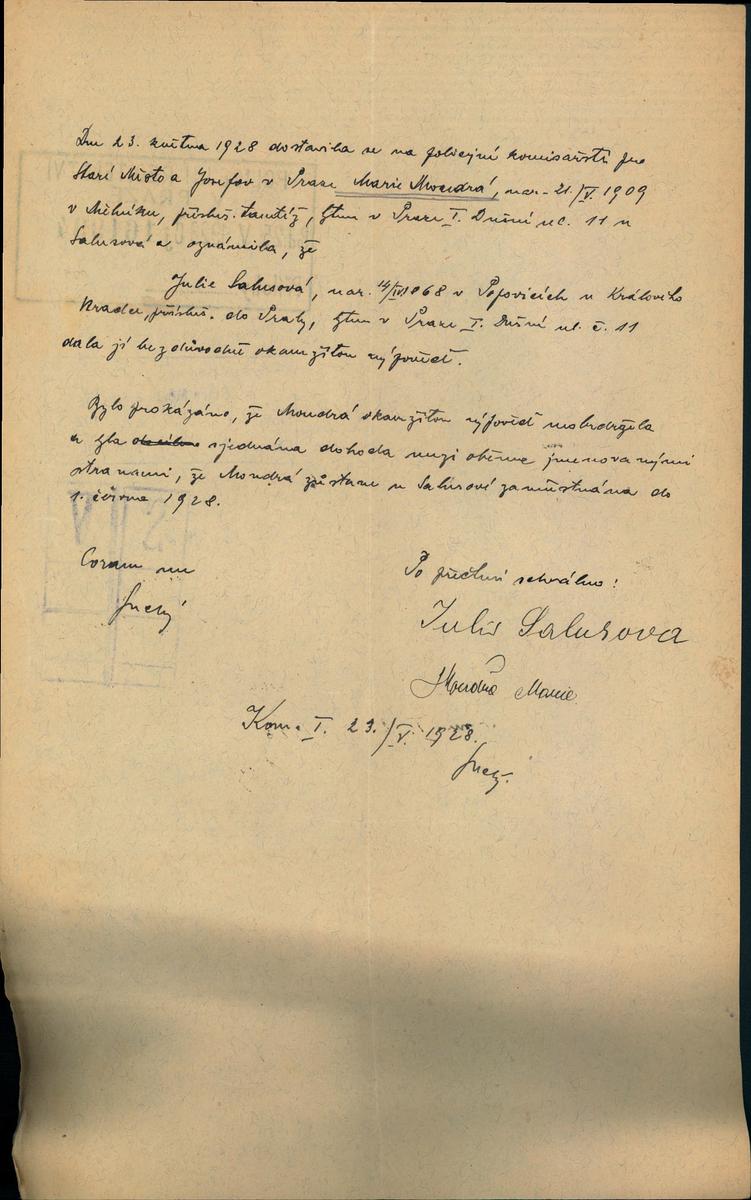 Dne 23. května 1928 dostavila se na policejní komisařství pro
Staré Město a Josefov v Praze Marie Moudrá, nar. 21./V. 1909
v Mělníku, přísluš. tamtéž, bytem v Praze I. Dušní ul. 11 u
Salusová a oznámila, že
Julie Salusová, nar. 14/IV.1868 v Popovicích u Králového
Hradce, přísluš. do Prahy, bytem v Praze I. Dušní ul. č. 11
dala jí bezdůvodně okamžitou výpověď.
Bylo prokázáno, že Moudrá okamžitou výpověď neobdržela
a byla sjednána dohoda mezi oběma jmenovanými
stranami, že Moudrá zůstane u Salusové zaměstnána do
1. června 1928.
Coram me
Suchý
Po přečtení schváleno:
Julie Salusova
Moudrá Marie
Kom. I. 23./V. 1928.
Suchý.